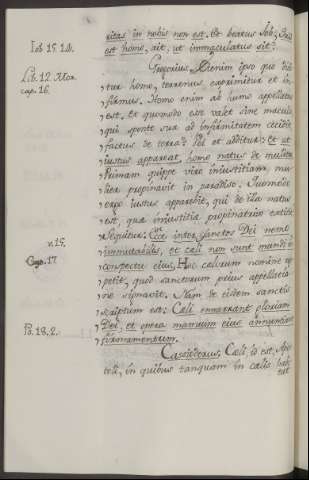 Iob 15. 14.
Lib. 12. Mor.
cap. 16.
v. 15.
Cap. 17
Ps. 18. 2.
ritas in nobis non est. Et beatus Iob: Quid
est homo, ait, ut immaculatus sit?
Gregorius. Etenim ipso quo dici-
tur homo, terrenus exprimitur et in-
firmus. Homo enim ab humo appellatus
est. Et quomodo esse valet sine macula
qui sponte sua ad infirmitatem cecidit
factus de terra? Sed et additur: Et ut
iustus appareat, homo natus de muliere
Primam quippe viro iniustitiam mu-
lier propinavit in paradiso. Quomodo
ergo iustus apparebit, qui de illa natus
est, quæ iniustitiæ propinatrix extitit
Sequitur: Ecce inter Sanctos Dei nemo
immutabilis, et cæli non sunt mundi in
conspectu eius. Hoc cælorum nomine re-
petit, quod sanctorum prius appellatio-
ne signavit. Nam de eisdem sanctis
scriptum est: Cæli enarrant gloriam
Dei, et opera manuum eius annuntiat
firmamentum.
Cassiodorus. Cæli, id est, Apo-
stoli, in quibus tanquam in cælis